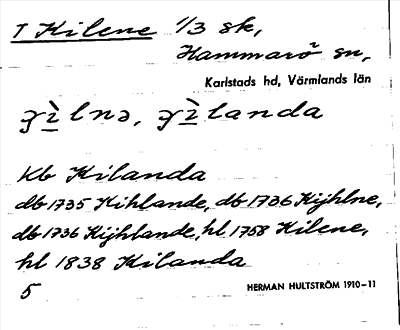 1 Kilene 1/3 sk,
Hammarö sn,
Karlstads hd, Värmlands län
kb Kilanda
db 1735 Kihlande, db 1736 Kijhlne,
db 1736 Kijhlande, hl 1758 Kilene,
hl 1838 Kilanda
5 HERMAN HULTSTRÖM 1910-11